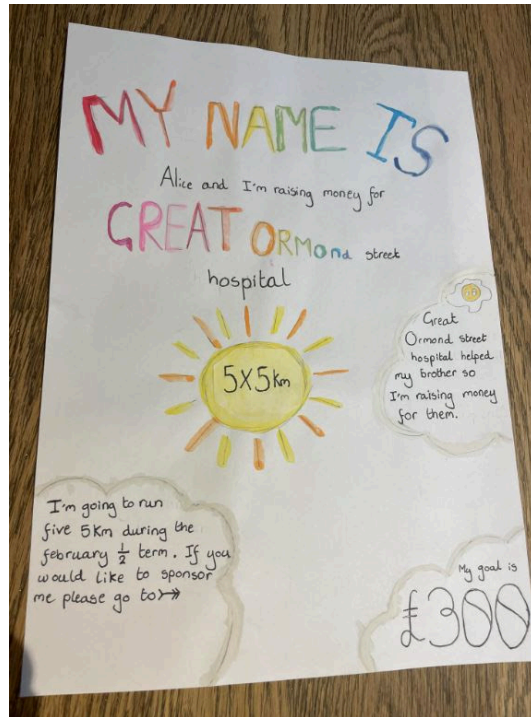 MY NAME IS
Alice and I'm raising money for
GREAT ORMOnd street
hospital
5x5km
Great
Ormond street
hospital helped
my brother so
I'm raising money
for them.
I'm going to run
five 5km during the
february ½ term. If you
would like to sponsor
me please go to
My goal is
£300